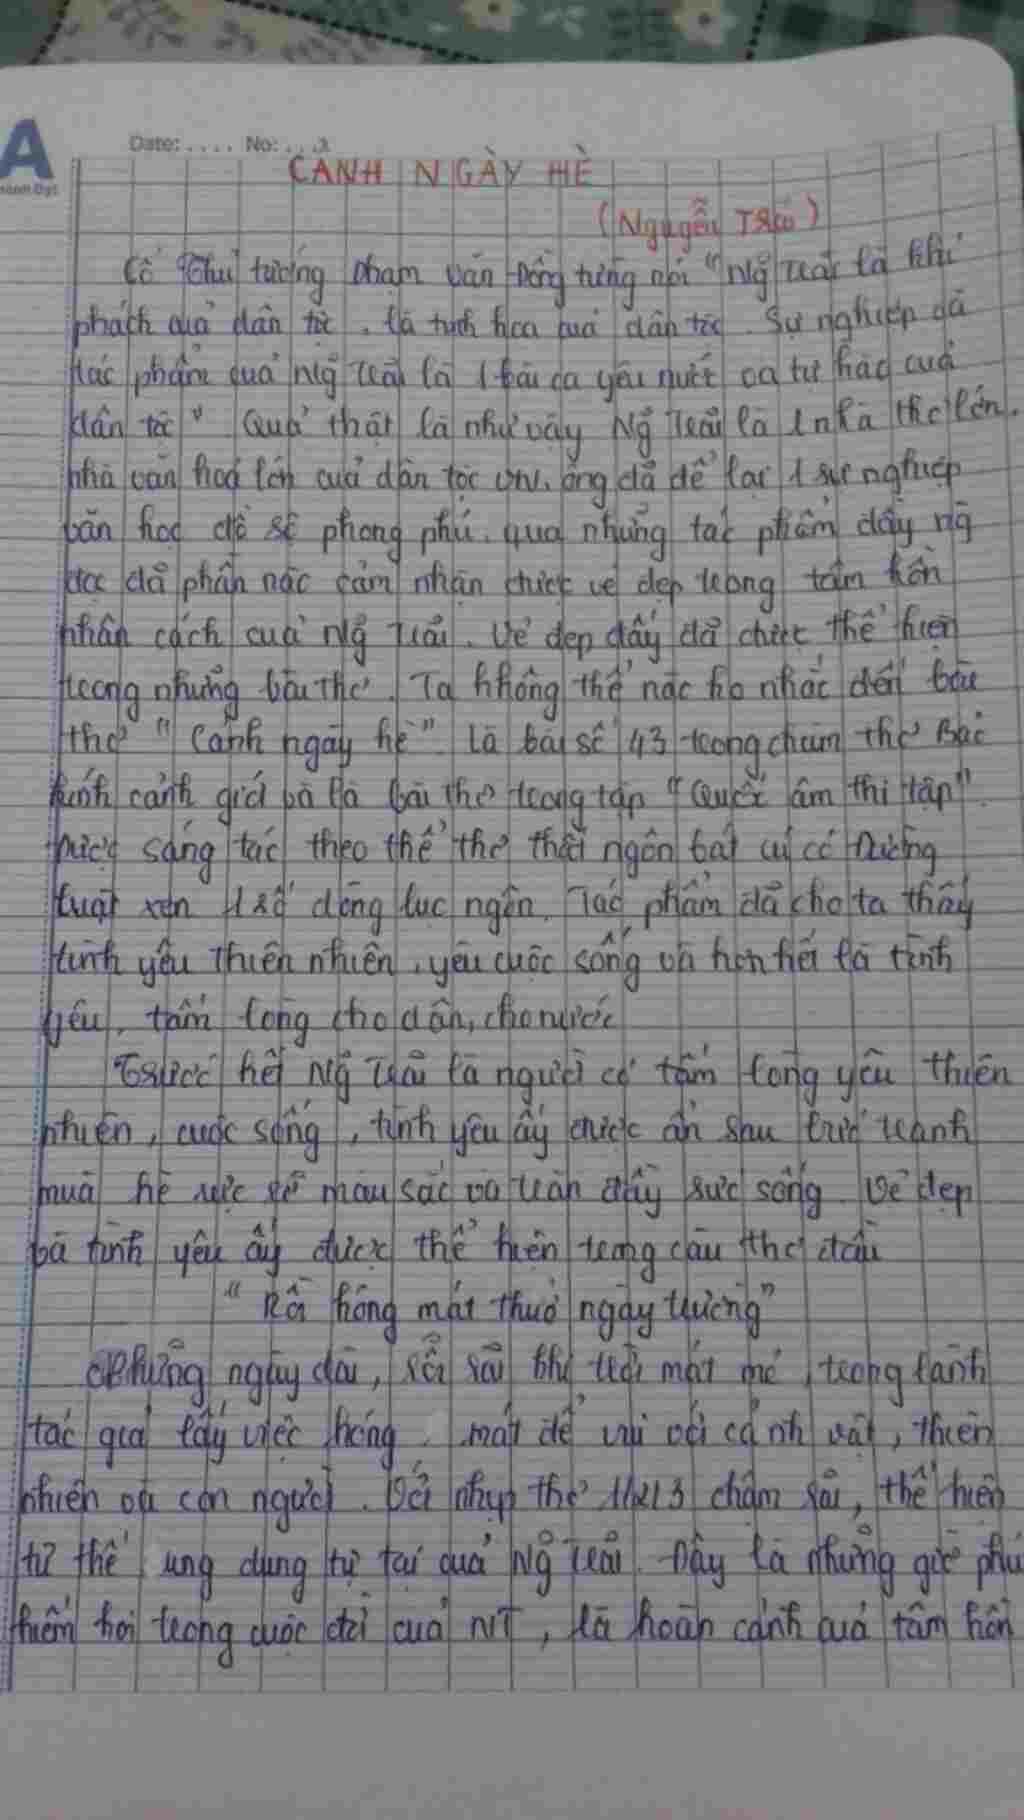 A
Date: .... No: ...
CẢNH NGÀY HÈ
(Nguyễn Trãi)
Cố Thủ tướng Phạm Văn Đồng từng nói "Ng̃ Trãi là khí
phách của dân tộc, là tinh hoa của dân tộc. Sự nghiệp và
tác phẩm của Ng̃ Trãi là 1 bài ca yêu nước và tự hào của
dân tộc" Quả thật là như vậy Ng̃ Trãi là 1 nhà thơ lớn,
nhà văn hoá lớn của dân tộc VN. ông đã để lại 1 sự nghiệp
văn học đồ sộ phong phú. qua những tác phẩm ấy ng̃
đọc đã phần nào cảm nhận được vẻ đẹp trong tâm hồn
nhân cách của Ng̃ Trãi. Vẻ đẹp đấy đã được thể hiện
trong những bài thơ. Ta không thể nào ko nhắc đến bài
thơ "Cảnh ngày hè". Là bài số 43 trong chùm thơ Bảo
kính cảnh giới và là bài thơ trong tập "Quốc âm thi tập".
Được sáng tác theo thể thơ thất ngôn bát cú có Đường
luật xen 1 số dòng lục ngôn. Tác phẩm đã cho ta thấy
tình yêu thiên nhiên, yêu cuộc sống và hơn hết là tình
yêu, tấm lòng cho dân, cho nước
Trước hết Ng̃ Trãi là người có tấm lòng yêu thiên
nhiên, cuộc sống, tình yêu ấy được ẩn sau bức tranh
mùa hè rực rỡ màu sắc và tràn đầy sức sống. Vẻ đẹp
và tình yêu ấy được thể hiện trong câu thơ đầu
"Rồi hóng mát thuở ngày trường"
Những ngày dài, rồi rãi khí trời mát mẻ, trong lành
tác giả lấy việc hóng mát để vui với cảnh vật, thiên
nhiên và con người. Với nhịp thơ 1/2/3 chậm rãi, thể hiện
tư thế ung dung tự tại của Ng̃ Trãi. Đây là những giờ phút
hiếm hoi trong cuộc đời của NT, là hoàn cảnh của tâm hồn